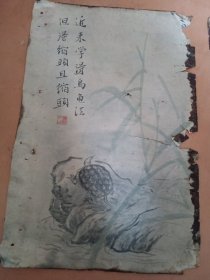 近来学得乌龟法
但得缩头且缩头